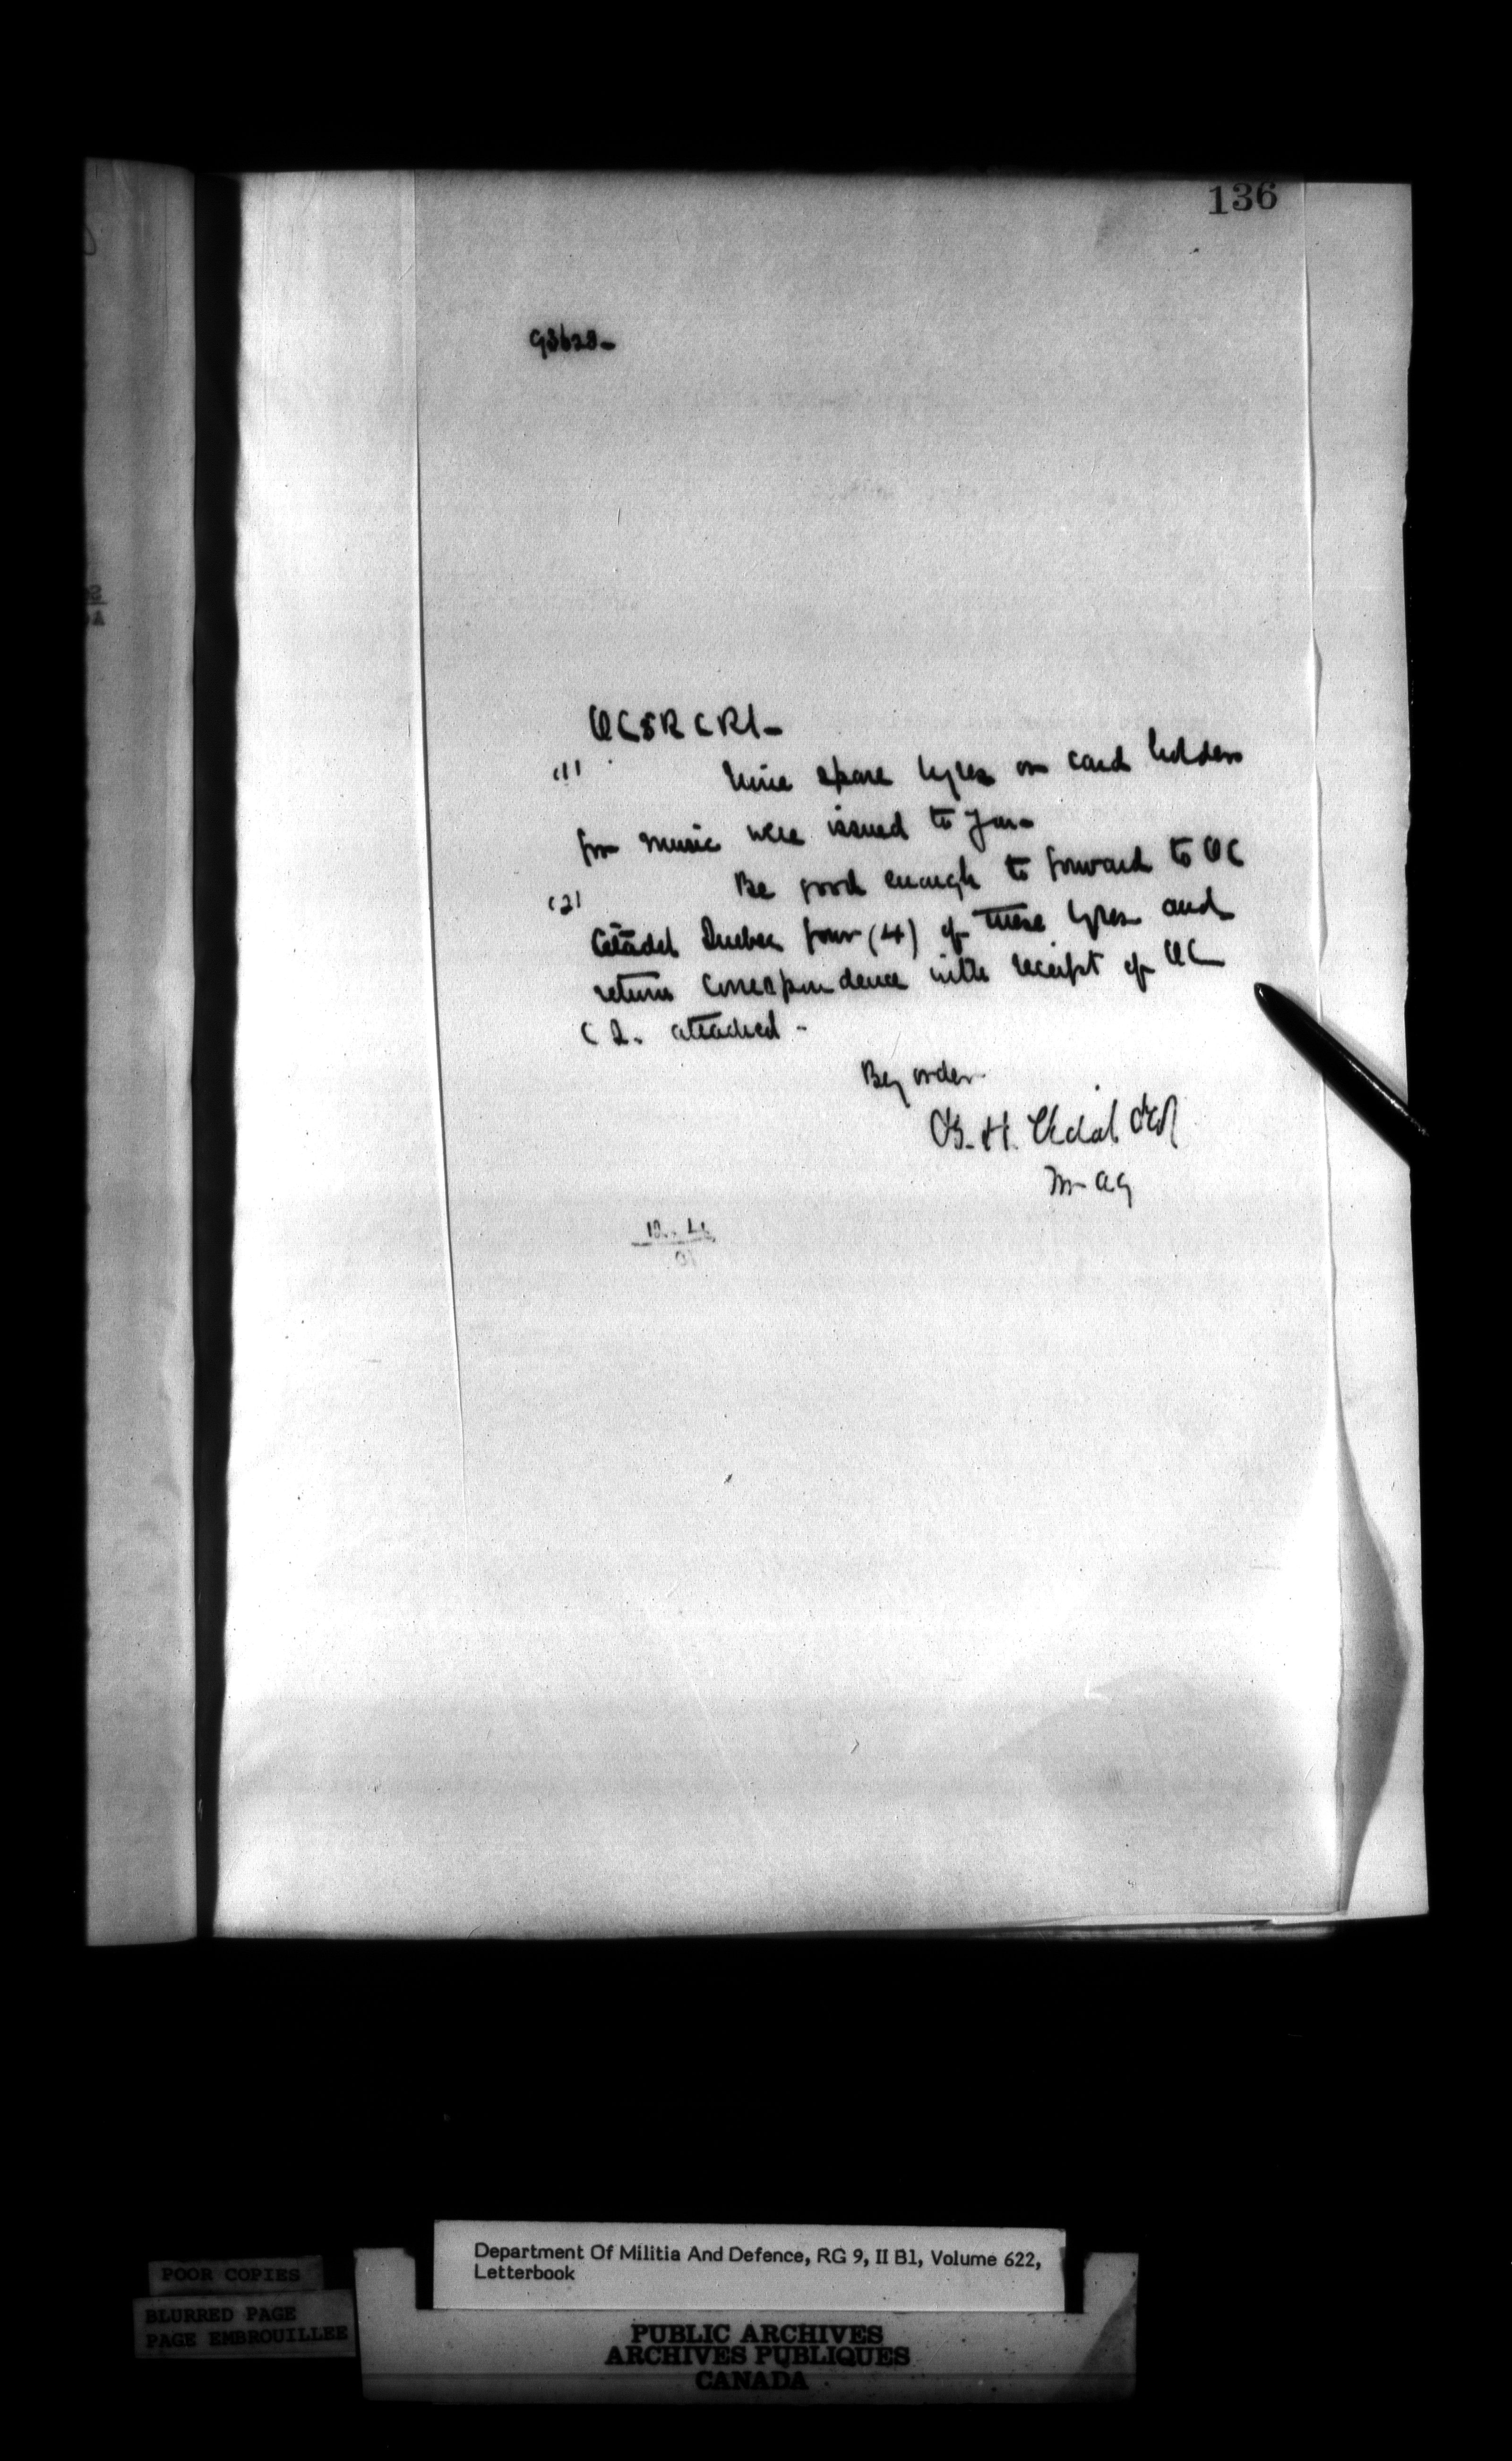 136
93628-
OC S R C R I -
(1) Nine spare lyres or card holders
for music were issued to you -
(2) Be good enough to forward to OC
Citadel Quebec four (4) of these lyres and
return correspondence with receipt of OC
C Q. attached -
By order
B. H. Vidal
for AG
12. 4.
01
Department Of Militia And Defence, RG 9, II B1, Volume 622,
Letterbook
POOR COPIES
BLURRED PAGE
PAGE EMBROUILLEE
PUBLIC ARCHIVES
ARCHIVES PUBLIQUES
CANADA